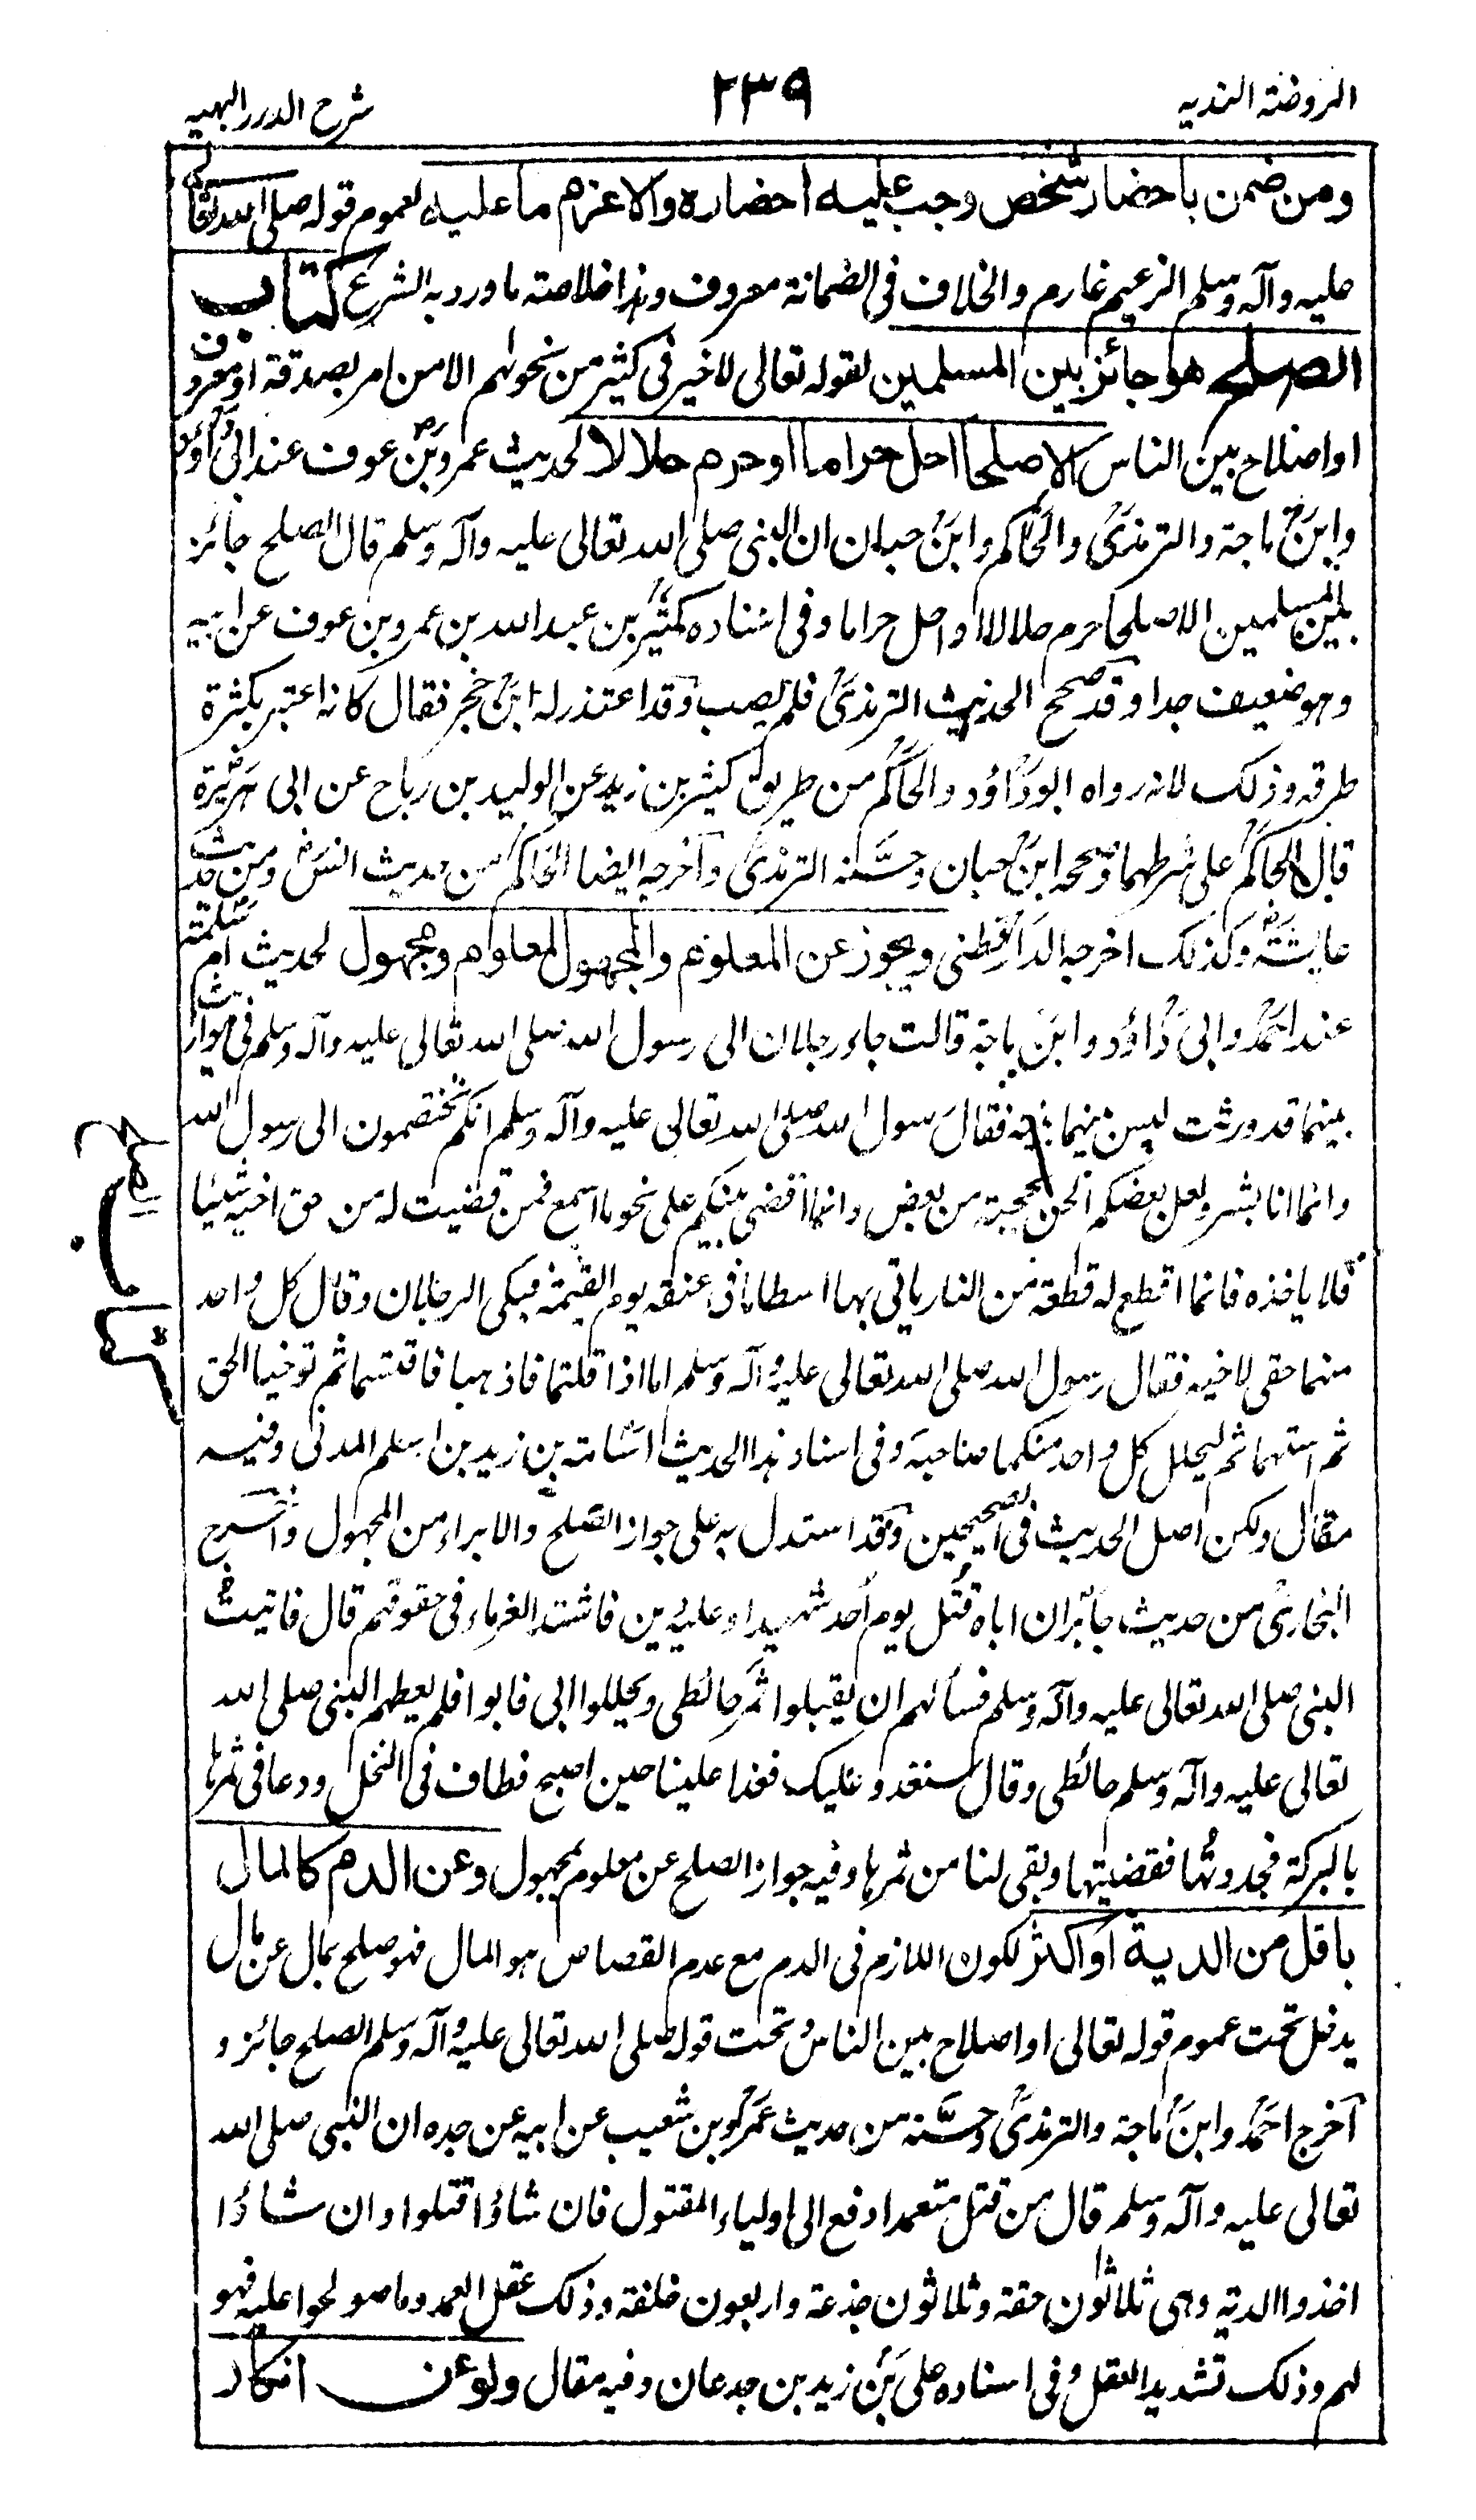 الروضة الندية
٢٣٩
شرح الدرر البهية
ومن ضمن باحضار شخص وجب عليه احضاره والا غرم ما عليه لعموم قوله صلى الله تعالى
عليه وآله وسلم الزعيم غارم والخلاف في الضمانة معروف وهذا خلاصة ما ورد به الشرع كتاب
الصلح هو جائز بين المسلمين لقوله تعالى لا خير في كثير من نجواهم الا من امر بصدقة او معروف
او اصلاح بين الناس الا صلحا احل حراما او حرم حلالا لحديث عمرو بن عوف عند ابي داؤد
وابن ماجة والترمذي والحاكم وابن حبان ان النبي صلى الله تعالى عليه وآله وسلم قال الصلح جائز
بين المسلمين الا صلحا حرم حلالا او احل حراما وفي اسناده كثير بن عبد الله بن عمرو بن عوف عن ابيه
وهو ضعيف جدا وقد صحح الحديث الترمذي فلم يصب وقد اعتذر له ابن حجر فقال كانه اعتبر بكثرة
طرقه وذلك لانه رواه ابو داؤد والحاكم من طريق كثير بن زيد عن الوليد بن رباح عن ابي هريرة
قال الحاكم على شرطهما وصححه ابن حبان وحسنه الترمذي واخرجه ايضا الحاكم من حديث انس ومن حديث
عايشة وكذلك اخرجه الدارقطني ويجوز عن المعلوم والمجهول بمعلوم ومجهول لحديث ام سلمة
عند احمد وابي داؤد وابن ماجة قالت جاء رجلان الى رسول الله صلى الله تعالى عليه وآله وسلم في مواريث
بينهما قد درست ليس بينهما بينة فقال رسول الله صلى الله تعالى عليه وآله وسلم انكم تختصمون الى رسول الله
وانما انا بشر ولعل بعضكم الحن بحجته من بعض وانما اقضي بينكم على نحو ما اسمع فمن قضيت له من حق اخيه شيئا
فلا ياخذه فانما اقطع له قطعة من النار ياتي بها اسطاما في عنقه يوم القيمة فبكى الرجلان وقال كل واحد
منهما حقي لاخي فقال رسول الله صلى الله تعالى عليه وآله وسلم اما اذا قلتما فاذهبا فاقتسما ثم توخيا الحق
ثم استهما ثم ليحلل كل واحد منكما صاحبه وفي اسناد هذا الحديث اسامة بن زيد بن اسلم المدني وفيه
مقال ولكن اصل الحديث في الصحيحين وقد استدل به على جواز الصلح والابراء من المجهول واخرج
البخاري من حديث جابر ان اباه قتل يوم احد شهيدا وعليه دين فاشتد الغرماء في حقوقهم قال فاتيت
النبي صلى الله تعالى عليه وآله وسلم فسألهم ان يقبلوا ثمر حائطي ويحللوا ابي فابوا فلم يعطهم النبي صلى الله
تعالى عليه وآله وسلم حائطي وقال سنغدو عليك فغدا علينا حين اصبح فطاف في النخل ودعا في ثمرها
بالبركة فجددتها فقضيتها وبقي لنا من ثمرها وفيه جواز الصلح عن معلوم بمجهول وعن الدم كالمال
باقل من الدية او اكثر لكون اللازم في الدم مع عدم القصاص هو المال فهو صلح بمال عن مال
يدخل تحت عموم قوله تعالى او اصلاح بين الناس وتحت قوله صلى الله تعالى عليه وآله وسلم الصلح جائز و
اخرج احمد وابن ماجة والترمذي وحسنه من حديث عمرو بن شعيب عن ابيه عن جده ان النبي صلى الله
تعالى عليه وآله وسلم قال من قتل متعمدا دفع الى اولياء المقتول فان شاؤا قتلوا وان شاؤا
اخذوا الدية وهي ثلاثون حقة وثلاثون جذعة واربعون خلفة وذلك عقل العمد وما صولحوا عليه فهو
لهم وذلك تشديد العقل وفي اسناده علي بن زيد بن جدعان وفيه مقال ولو عن انكار